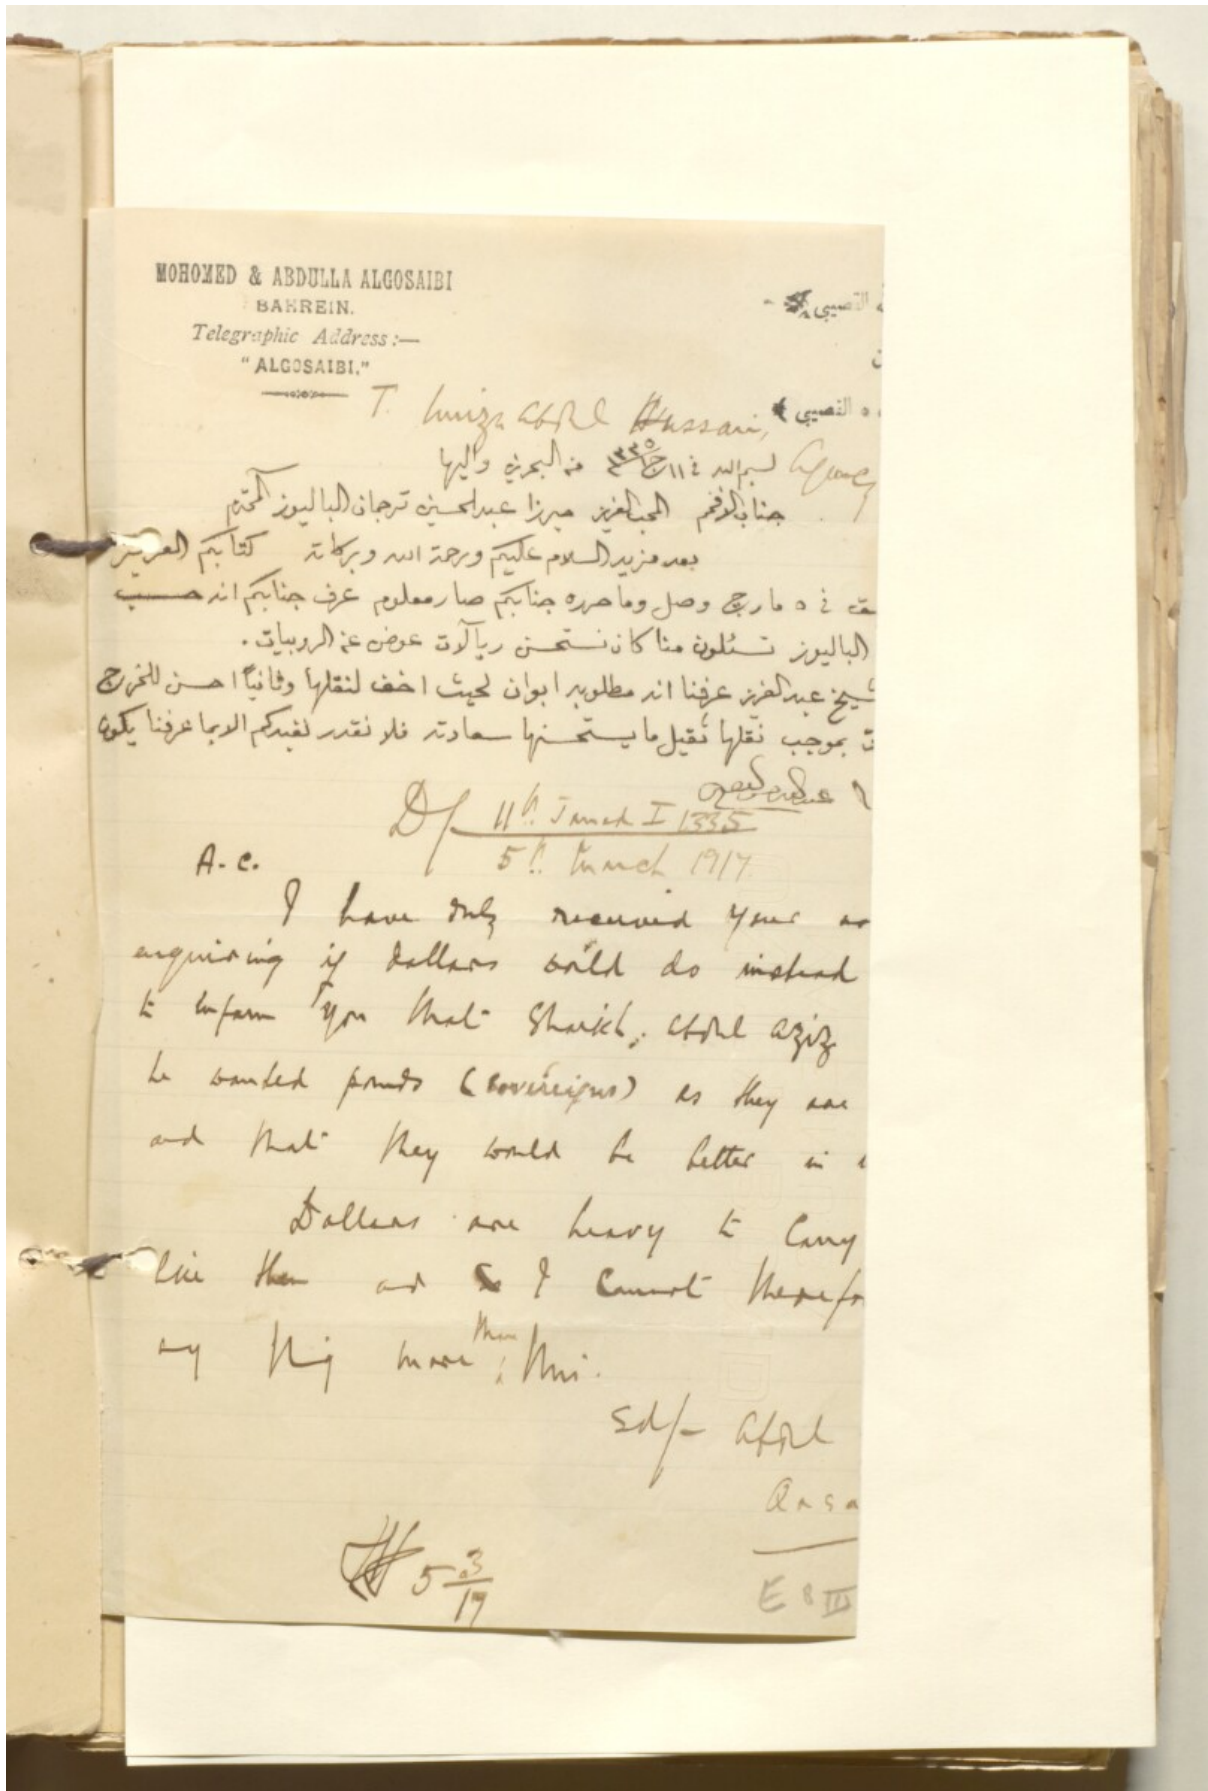 MOHOMED & ABDULLA ALGOSAIBI
BAHREIN.
Telegraphic Address:—
"ALGOSAIBI."
القصيبي
القصيبي
T. Mirza Abdul Hussain,
Agency
بسم الله في ١١ ج ١٣٣٥ من البحرين واليها
جناب الافخم المحب العزيز ميرزا عبدالحسين ترجمان الباليوز المحترم
بعد مزيد السلام عليكم ورحمة الله وبركاته كتابكم العزيز
في ٥ مارج وصل وما حرره جنابكم صار معلوم عرف جنابكم انه حسب
الباليوز تسئلون منا كان نستحسن ريالات عوض عن الروبيات .
شيخ عبدالعزيز عرفنا انه مطلوبه ابوان لحيث اخف لنقلها وثانياً احسن للخرج
بموجب نقلها ثقيل ما يستحسنها سعادته فلا نقدر نفيدكم الا بما عرفنا يكون
D/ 11th Jamad I 1335
5th March 1917
A. C.
I have duly received your
enquiring if dollars would do instead
to inform you that Shaikh Abdul Aziz
he wanted pounds (sovereigns) as they are
and that they would be better in
Dollars are heavy to carry
like them and I cannot therefo
any thing more than this.
Sd/- Abdul
5 3/17
E 8 III